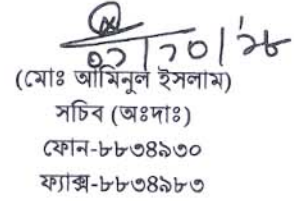 (মোঃ আমিনুল ইসলাম)
সচিব (অঃদাঃ)
ফোন-৮৮৩৪৯৩০
ফ্যাক্স-৮৮৩৪৯৮৩